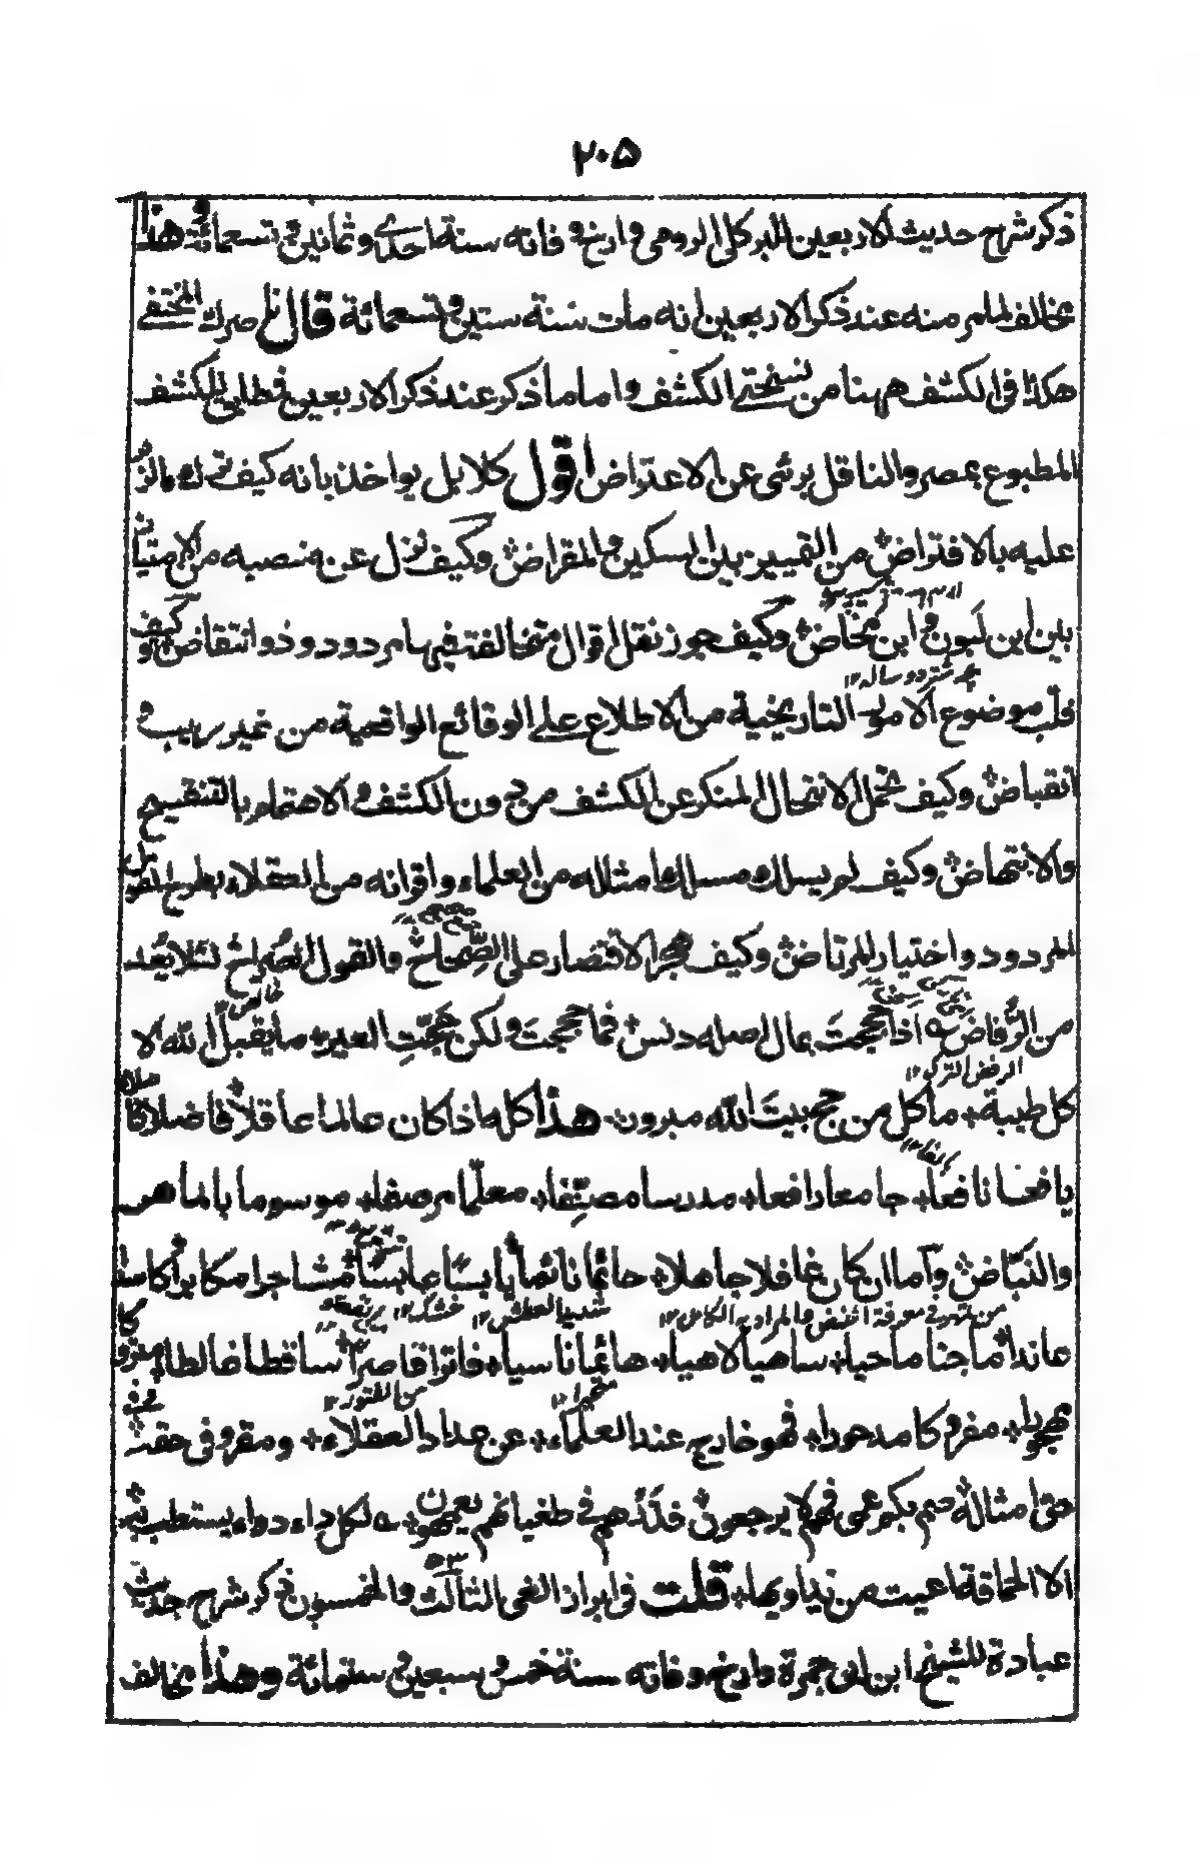 ٢٠٥
ذكر شرح حديث الاربعين للبركلى الرومى وارخ وفاته سنة احدى وثمانين وتسعمائة وهذا
مخالف لما مر منه عند ذكر الاربعين انه مات سنة ستين وتسعمائة قال ناصرك المختفى
هكذا فى الكشف ههنا من نسختى الكشف واما ما ذكر عند ذكر الاربعين فمطابق للكشف
المطبوع بمصر والناقل برئ عن الاعتراض اقول كلا بل يواخذ بانه كيف ترك ما لزم
عليه بالافتراض من التمييز بين السكين والمقراض وكيف نزل عن منصبه من الامتياز
بين ابن لبون وابن مخاض وكيف جوز نقل اقوال متخالفة فيها مردود وذو انتقاض وكيف
قلب موضوع الامور التاريخية من الاطلاع على الوقائع الواقعية من غير ريب و
انقباض وكيف تحمل الانتحال المنكر عن الكشف من دون الكشف والاهتمام بالتنقيح
والانتهاض وكيف لم يسلك مسلك امثاله من العلماء واقرانه من العقلاء بطرح القول
المردود واختيار المرتاض وكيف هجر الاقتصار على الصحاح والقول الصراح لئلا يعد
من الرفاض ؎ اذا حججت بمال اصله دنس فما حججت ولكن حجت العير ما يقبل الله الا
كل طيبة ما كل من حج بيت الله مبرور هذا كله اذا كان عالما عاقلا فاضلا
يافعا نافعا جامعا رافعا مدرسا مصنفا معلما مرصفا موسوما بالماهر
والنباض واما ان كان غافلا جاهلا حائما نائما يابسا عابسا مشاجرا مكابرا كاسدا
عاندا ماجنا ماحيا ساهيا لاهيا هائما ناسيا فاترا قاصرا ساقطا خالطا
مهجورا مفردا كا مدحورا فهو خارج عند العلماء عن عداد العقلاء ومقرو فى حقه
حق امثاله صم بكم عمى فهم لا يرجعون فذرهم فى طغيانهم يعمهون ؎ لكل داء دواء يستطب به
الا الحماقة اعيت من يداويها قلت فى ابراز الغى الثالث والخمسون ذكر شرح حديث
عبادة للشيخ ابن ابى جمرة وارخ وفاته سنة خمس وسبعين وستمائة وهذا مخالف